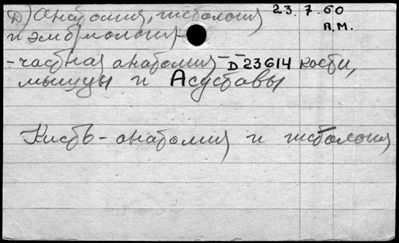 D) Анатомия, гистология 23.7.60
и эмбриология A.M.
- частная анатомия - D 23614 кости,
мышцы и Асуставы
Кисть - анатомия и гистология